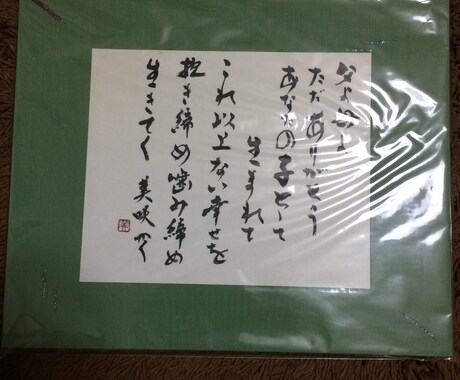 父よ母よ
ただありがとう
あなたの子として
生まれて
これ以上ない幸せを
抱き締め噛み締め
生きてく 美咲かく